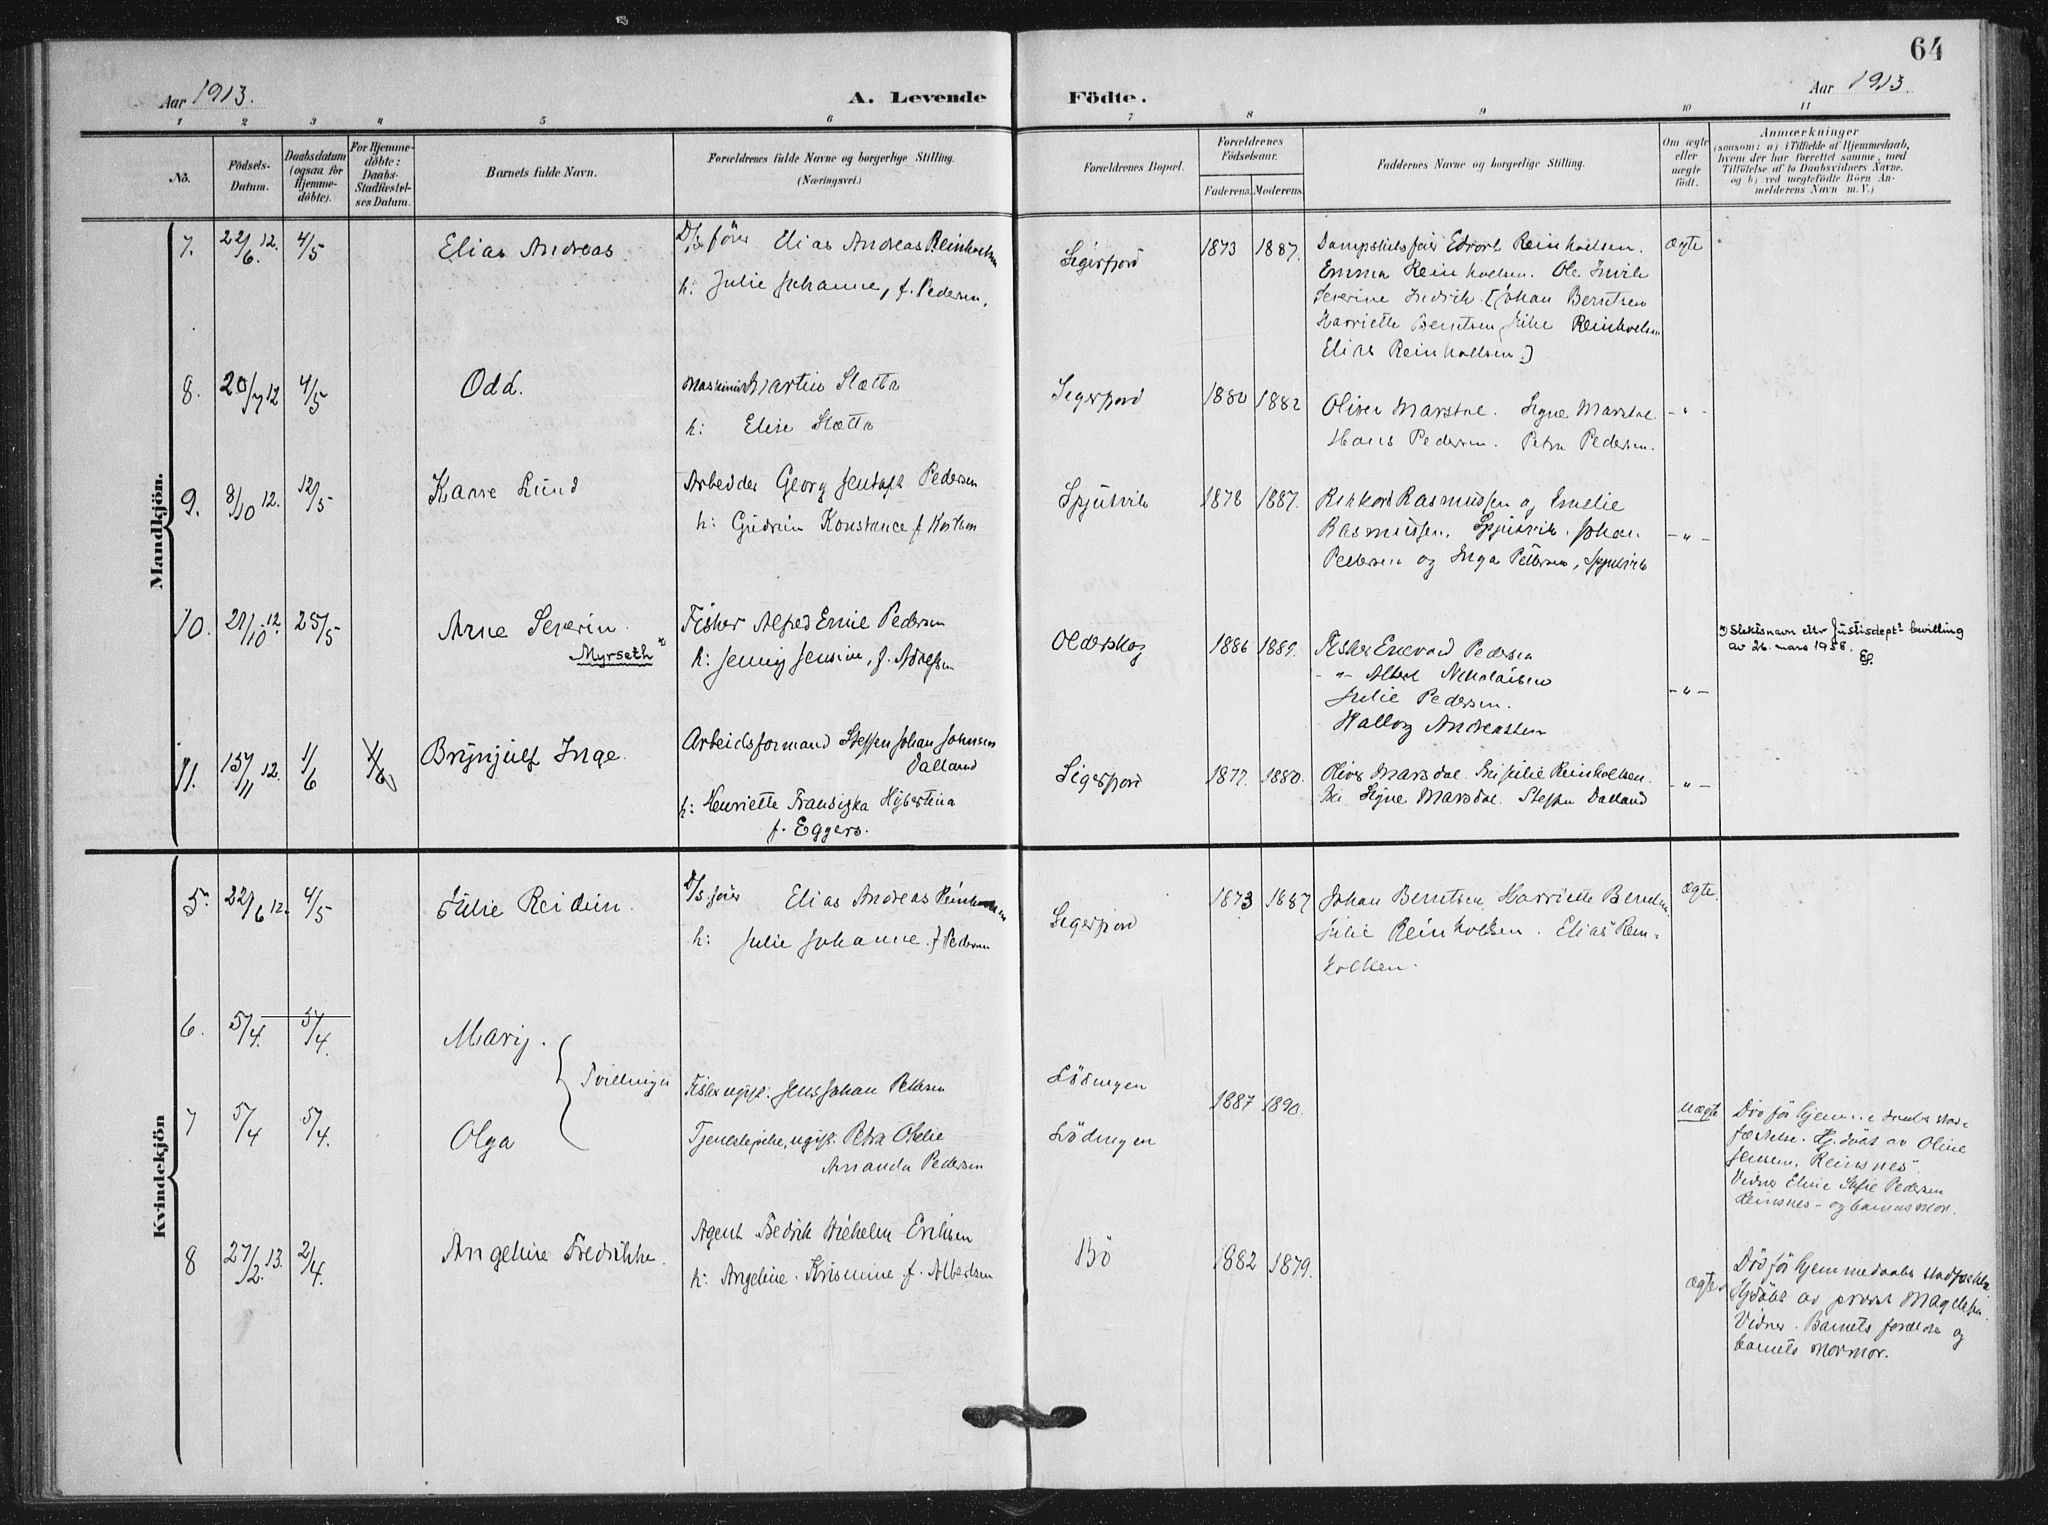 64
Aar 1913.
A. Levende Födte.
Aar 1913.
1 2 3 4 5 6 7 8 9 10 11
No.
Födsels-
Datum.
Daabsdatum
(ogsaa for
Hjemme-
döbte).
For Hjemme-
döbte:
Daabs-
Stadfæstel-
ses Datum.
Barnets fulde Navn.
Forældrenes fulde Navne og borgerlige Stilling.
(Næringsvei.)
Forældrenes Bopæl.
Forældrenes
Födselsaar.
Faderens. Moderens.
Faddernes Navne og borgerlige Stilling.
Om ægte
eller
uægte
födt.
Anmærkninger
(saasom: a) i Tilfælde af Hjemmedaab,
hvem der har forrettet samme, med
Tilföielse af to Daabsvidners Navne.
og b) ved uægtefödte Börn An-
melderens Navn m. V.)
Mandkjön.
7. 22/6 12. 4/5 Elias Andreas
D/S förer Elias Andreas Reinholtsen
h: Julie Johanne, f. Pedersen.
Sigerfjord 1873 1887.
Dampskibsförer Edvart Reinholtsen.
Emma Reinholtsen. Ole Indvik
Severine Indvik. [Johan Berntsen
Harriette Berntsen Julie Reinholtsen
Elias Reinholtsen.]
ægte
8. 20/7 12 4/5 Odd.
Maskinist Martin Slætta
h: Elise Slætta
Sigerfjord 1880 1882
Oliver Marsdal. Signe Marsdal.
Hans Pedersen. Petra Pedersen.
-"-
9. 8/10 12. 12/5 Kaare Lund
Arbeider Georg Pedersen
h: Gudrun Konstance f.
Spjutvik 1878 1887.
Rikkard Rasmussen og Emelie
Rasmussen, Spjutvik. Johan
Pettersen og Inga Pettersen, Spjutvik
-"-
10. 21/10 12. 25/5 Arne Severin
Myrseth *)
Fisker Alfred Emil Pedersen
h: Jenny Jensine, f.
Olderskog 1886 1889.
Fisker Enevold Pedersen
-"- Albert Nikolaisen
Julie Pedersen.
Hallog Andreassen
-"-
*) Slektsnavn ettr Justisdept's bevilling
av 26. mars 1958.
11. 15/11 12. 1/6 1/6 Brynjulf Inge.
Arbeidsformand Steffen Johan Johnsen
Dalland
h: Henriette Fransiska Hybertina
f. Eggers.
Sigerfjord 1877. 1880.
Oliver Marsdal. Fru Julie Reinholtsen.
Fru Signe Marsdal. Steffen Dalland
-"-
Kvindekjön
5. 22/6 12. 4/5 Julie Reidun.
D/S förer Elias Andreas Reinholtsen
h: Julie Johanne. f Pedersen
Sigerfjord 1873 1887
Johan Berntsen Harriette Berntsen.
Julie Reinholtsen. Elias Rein-
holtsen.
ægte.
6. 5/4. 5/4. Mary.
Tvillinger
7 5/4 5/4. Olga
Fisker ugift: Jens Johan Pettersen
Tjenestepike, ugift. Petra Otelie
Amanda Pedersen
Lödingen
Lödingen
1887 1890.
uægte
Död för hjemmedaabs stad-
fæstelse. Hj. döbt av Oline
Jensen, Reinsnes.
Vidner Eline Sofie Pedersen
Reinsnes - og barnets mor.
8 27/2. 13. 2/4. Angeline Fredrikke.
Agent Fredrik Wilhelm Eriksen
h: Angeline. Krismine f. Albertsen
Bö 1882 1879.
ægte
Död för hjemmedaabs stadfæstelse
Hjdöbt av provst Magelssen.
Vidner. Barnets forældre og
barnets mormor.